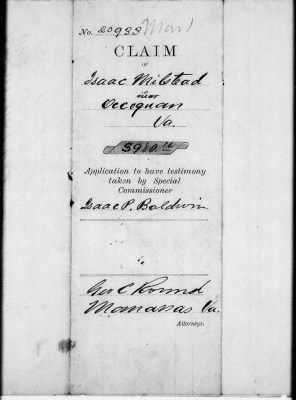 No. 20933
CLAIM
OF
Isaac Milstead
near
Occoquan
Va.
Application to have testimony
taken by Special
Commissioner
Isaac P. Baldwin
Geo C Round
Manassas Va.
Attorneys.